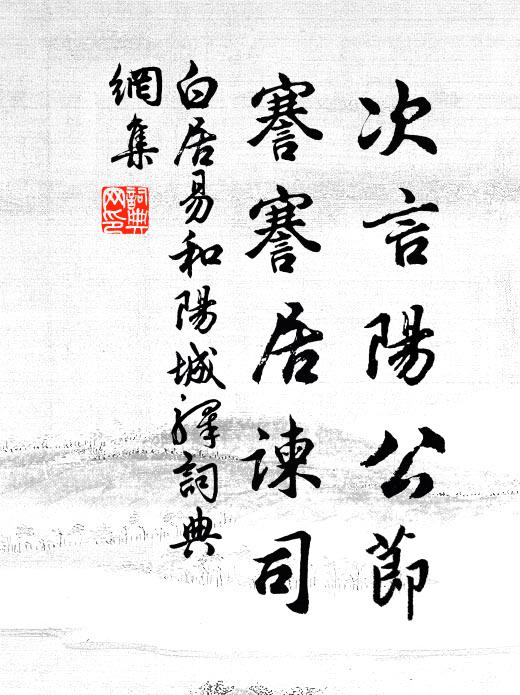 次言陽公節
謇謇居諫司
白居易和陽城驛詞典
網集
詞典
网印